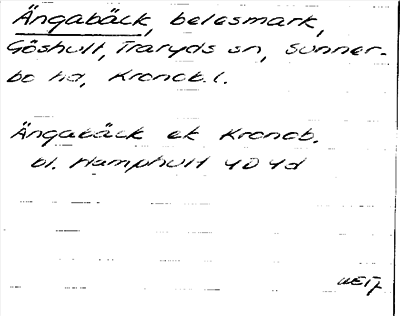 Ängabäck, belesmark,
Göshult, Traryds sn, Sunner-
bo hd, Kronob. l.
Ängabäck ek Kronob.
bl. Hamphult 4D 4d